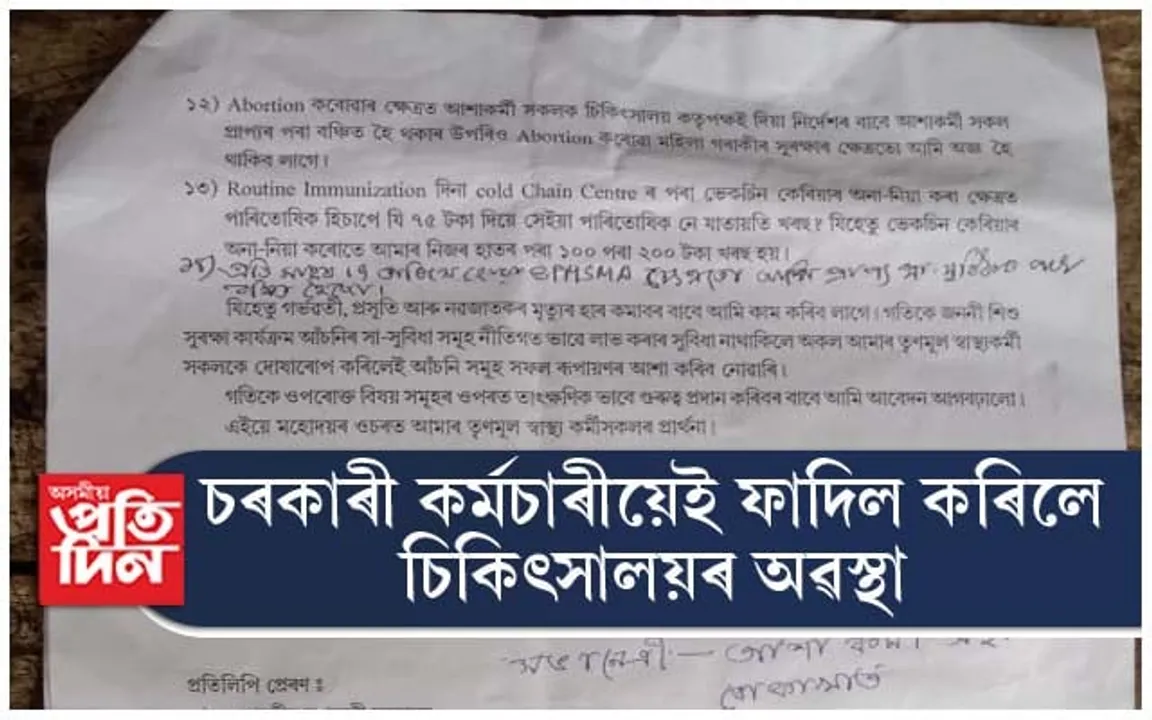 ১২) Abortion কৰোৱাৰ ক্ষেত্ৰত আশাকৰ্মী সকলক চিকিৎসালয় কতৃপক্ষই দিয়া নিৰ্দেশৰ বাবে আশাকৰ্মী সকল
প্ৰাপ্যৰ পৰা বঞ্চিত হৈ থকাৰ উপৰিও Abortion কৰোৱা মহিলা গৰাকীৰ সুৰক্ষাৰ ক্ষেত্ৰতো আমি অজ্ঞ হৈ
থাকিব লাগে।
১৩) Routine Immunization দিনা cold Chain Centre ৰ পৰা ভেকচিন কেৰিয়াৰ অনা-নিয়া কৰা ক্ষেত্ৰত
পাৰিতোষিক হিচাপে যি ৭৫ টকা দিয়ে সেইয়া পাৰিতোষিক নে যাতায়তি খৰছ? যিহেতু ভেকচিন কেৰিয়াৰ
অনা-নিয়া কৰোতে আমাৰ নিজৰ হাতৰ পৰা ১০০ পৰা ২০০ টকা খৰছ হয়।
১৪) প্ৰতি মাহৰ
যিহেতু গৰ্ভৱতী, প্ৰসূতি আৰু নৱজাতকৰ মৃত্যুৰ হাৰ কমাবৰ বাবে আমি কাম কৰিব লাগে। গতিকে জননী শিশু
সুৰক্ষা কাৰ্যক্ৰম আঁচনিৰ সা-সুবিধা সমূহ নীতিগত ভাৱে লাভ কৰাৰ সুবিধা নাথাকিলে অকল আমাৰ তৃণমূল স্বাস্থ্যকৰ্মী
সকলকে দোষাৰোপ কৰিলেই আঁচনি সমূহ সফল ৰূপায়ণৰ আশা কৰিব নোৱাৰি।
গতিকে ওপৰোক্ত বিষয় সমূহৰ ওপৰত তাৎক্ষণিক ভাৱে গুৰুত্ব প্ৰদান কৰিবৰ বাবে আমি আবেদন আগবঢ়ালো।
এইয়ে মহোদয়ৰ ওচৰত আমাৰ তৃণমূল স্বাস্থ্য কৰ্মীসকলৰ প্ৰাৰ্থনা।
অসমীয়া
প্ৰতি
দিন
চৰকাৰী কৰ্মচাৰীয়েই ফাদিল কৰিলে
চিকিৎসালয়ৰ অৱস্থা
প্ৰতিলিপি প্ৰেৰণ ঃ